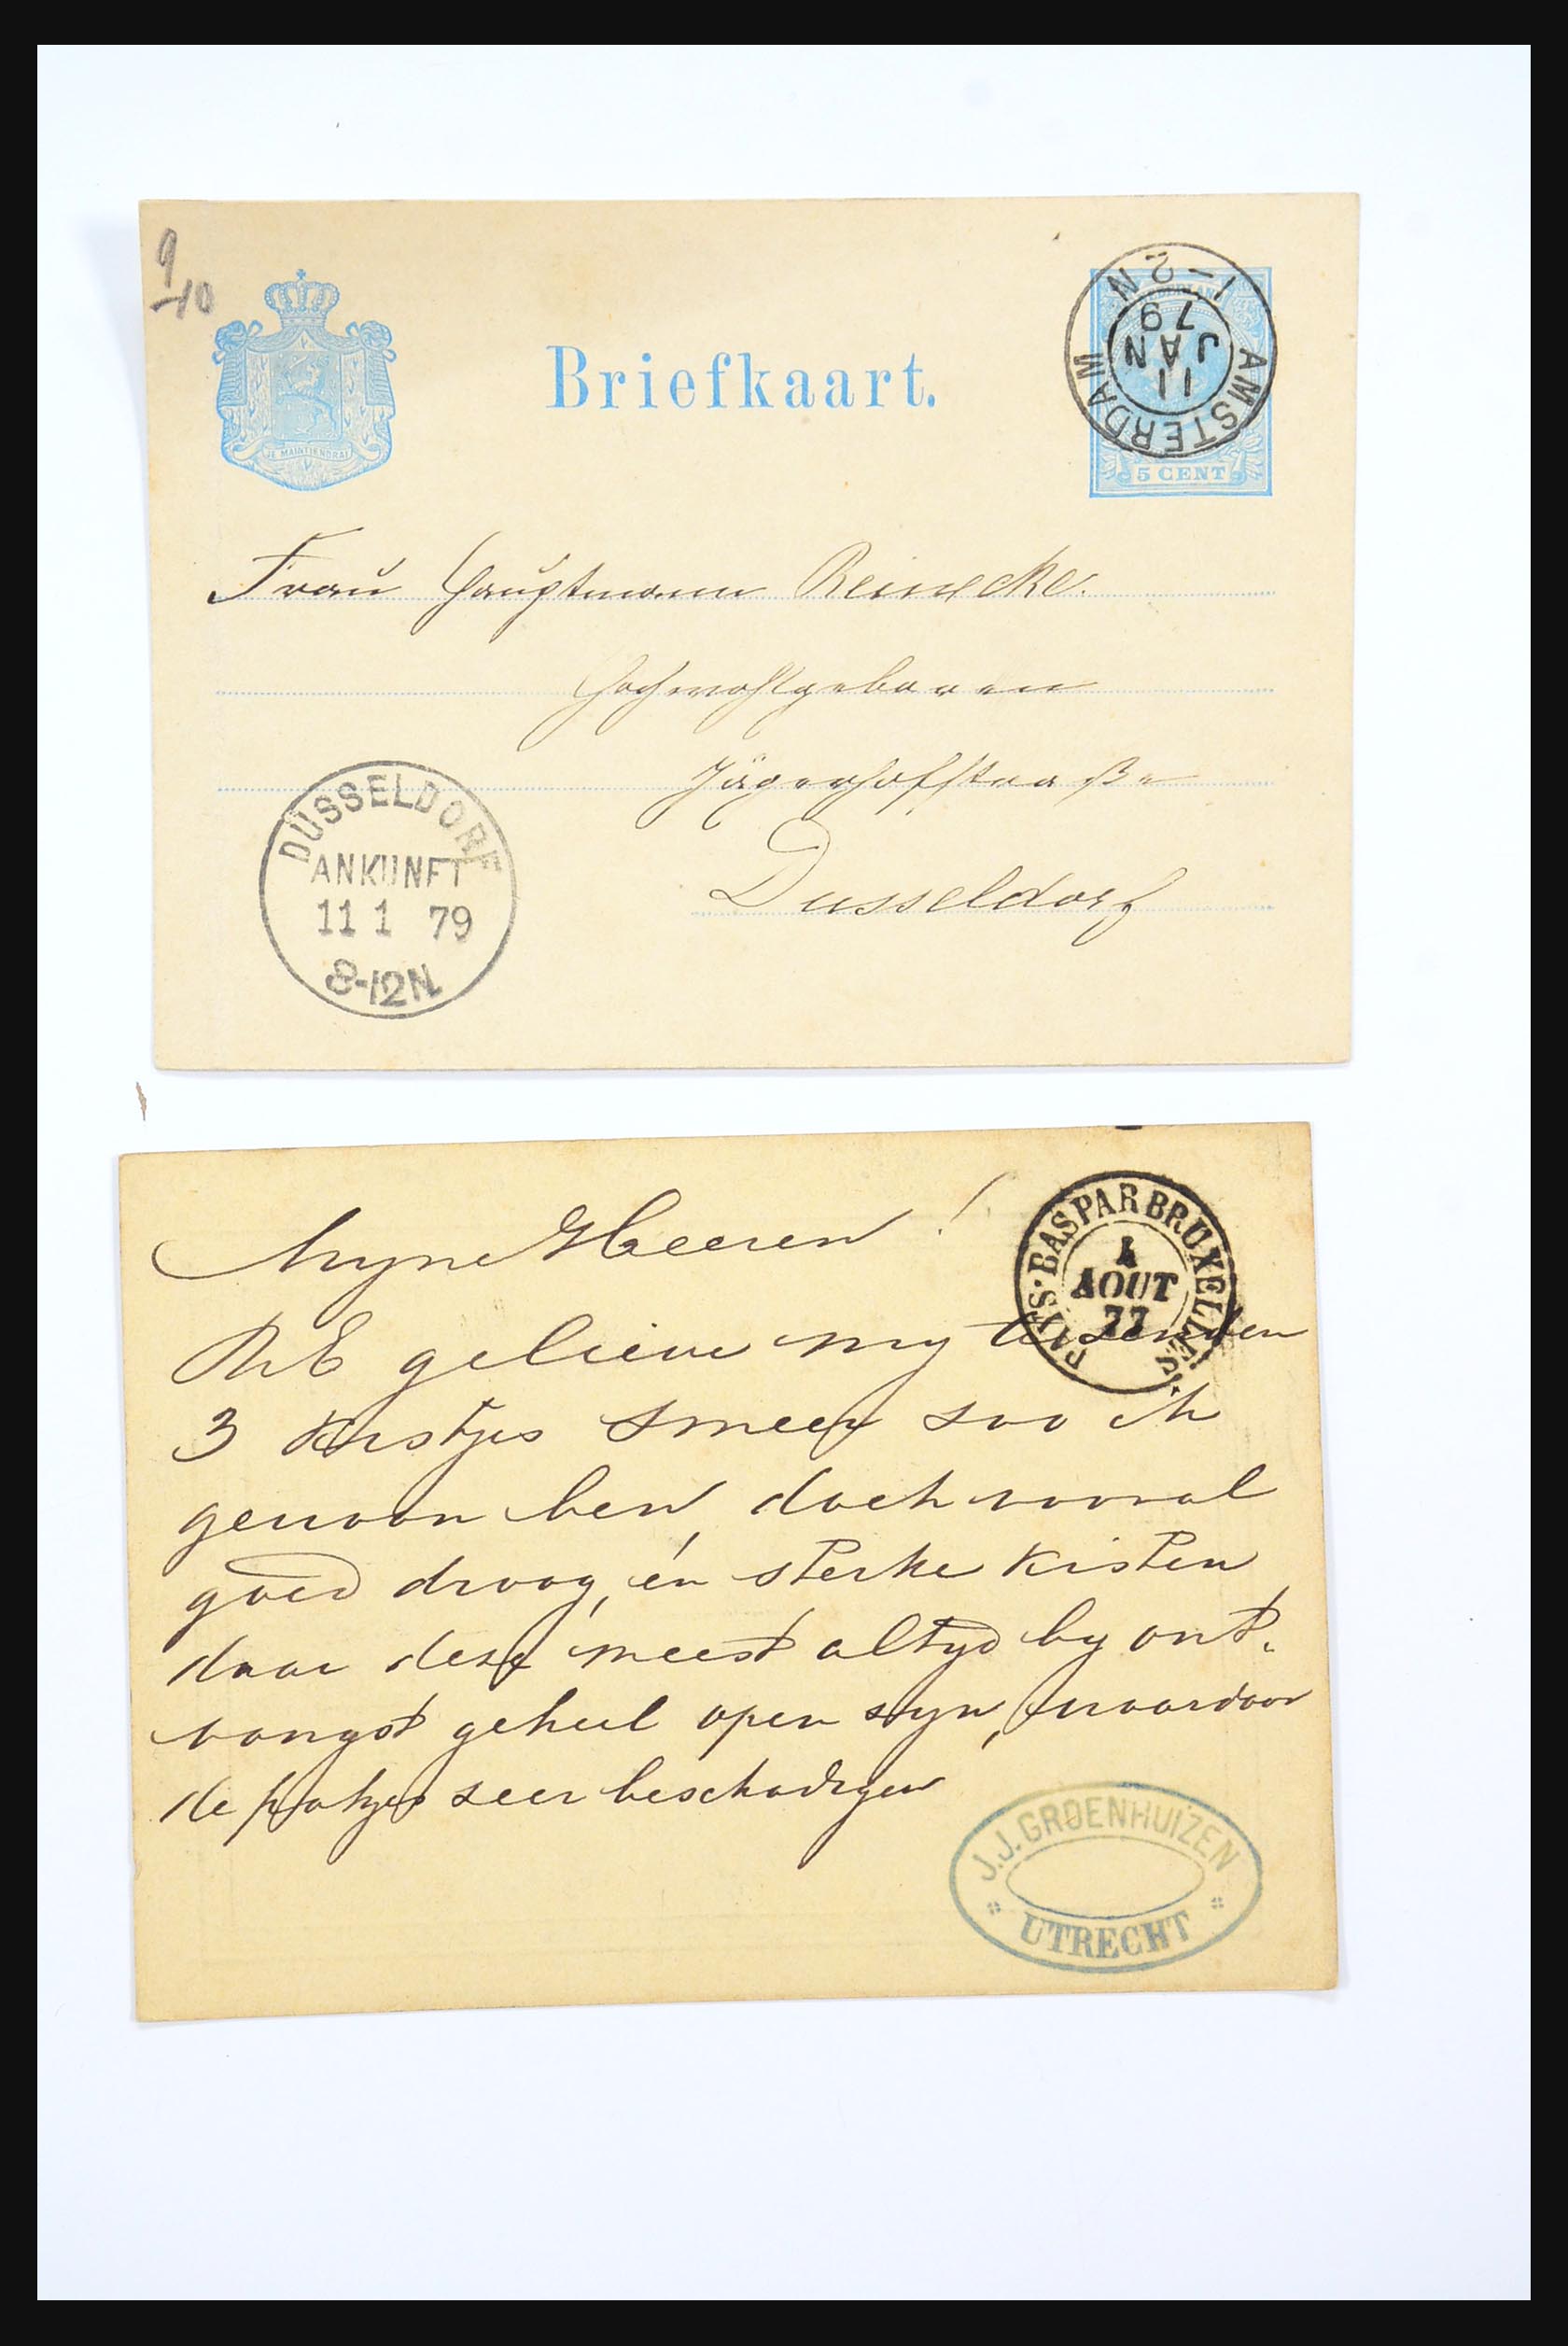 9/10
JE MAINTIENDRAI
Briefkaart.
AMSTERDAM
11
JAN
79
1-2 N
5 CENT
Frau Hauptmann Reinecke.
Hochwohlgeboren
Jägerhofstraße
Dusseldorf
DÜSSELDORF
ANKUNFT
11 1 79
8-12N
Myne Heeren!
PAYS-BAS PAR BRUXELLES
4
AOUT
77
gelieve my te senden
3 kistjes smeer soo ik
gewoon ben, doch vooral
goed droog, én sterke kisten
daar deze meest altyd by ont-
vangst geheel open zyn, waardoor
de potjes zeer beschadigen
J.J. GROENHUIZEN
UTRECHT